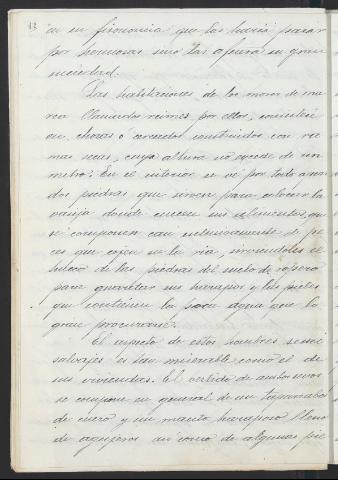 12
en su fisonomia que las haria pasar
por hermosas sino las afeara su gran
suciedad.
Las habitaciones de los moros de ma
rea llamados reimes por ellos, consisten
en chozas ó cercados construidos con ra
mas secas, cuya altura no excede de un
metro. En el interior se vé por todo ajuar
dos piedras que sirven para colocar la
vasija donde cuecen sus alimentos, que
se componen casi exclusivamente de pe
ces que cojen en la ria, sirviéndoles el
hueco de las piedras del suelo de ropero
para guardar sus harapos y las pieles
que contienen la poca agua que lo
gran procurarse.
El aspecto de estos hombres semi
salvajes es tan miserable como el de
sus viviendas. El vestido de ambos sexos
se compone en general de un taparrabos
de cuero y un manto haraposo lleno
de agujeros asi como de algunas pie